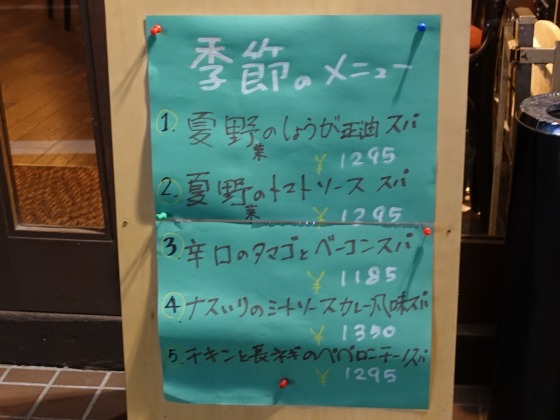 季節のメニュー
1. 夏野菜のしょうが正油スパ
¥1295
2. 夏野菜のトマトソーススパ
¥1295
3. 辛口のタマゴとベーコンスパ
¥1185
4. ナスいりのミートソースカレー風味スパ
¥1350
5. チキンと長ネギのペペロニチーノスパ
¥1295